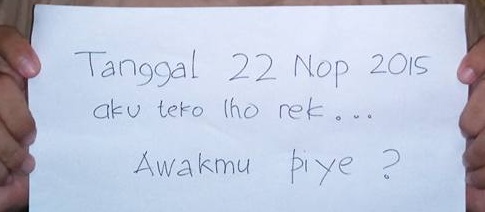 Tanggal 22 Nop 2015
aku teko lho rek....
Awakmu piye ?